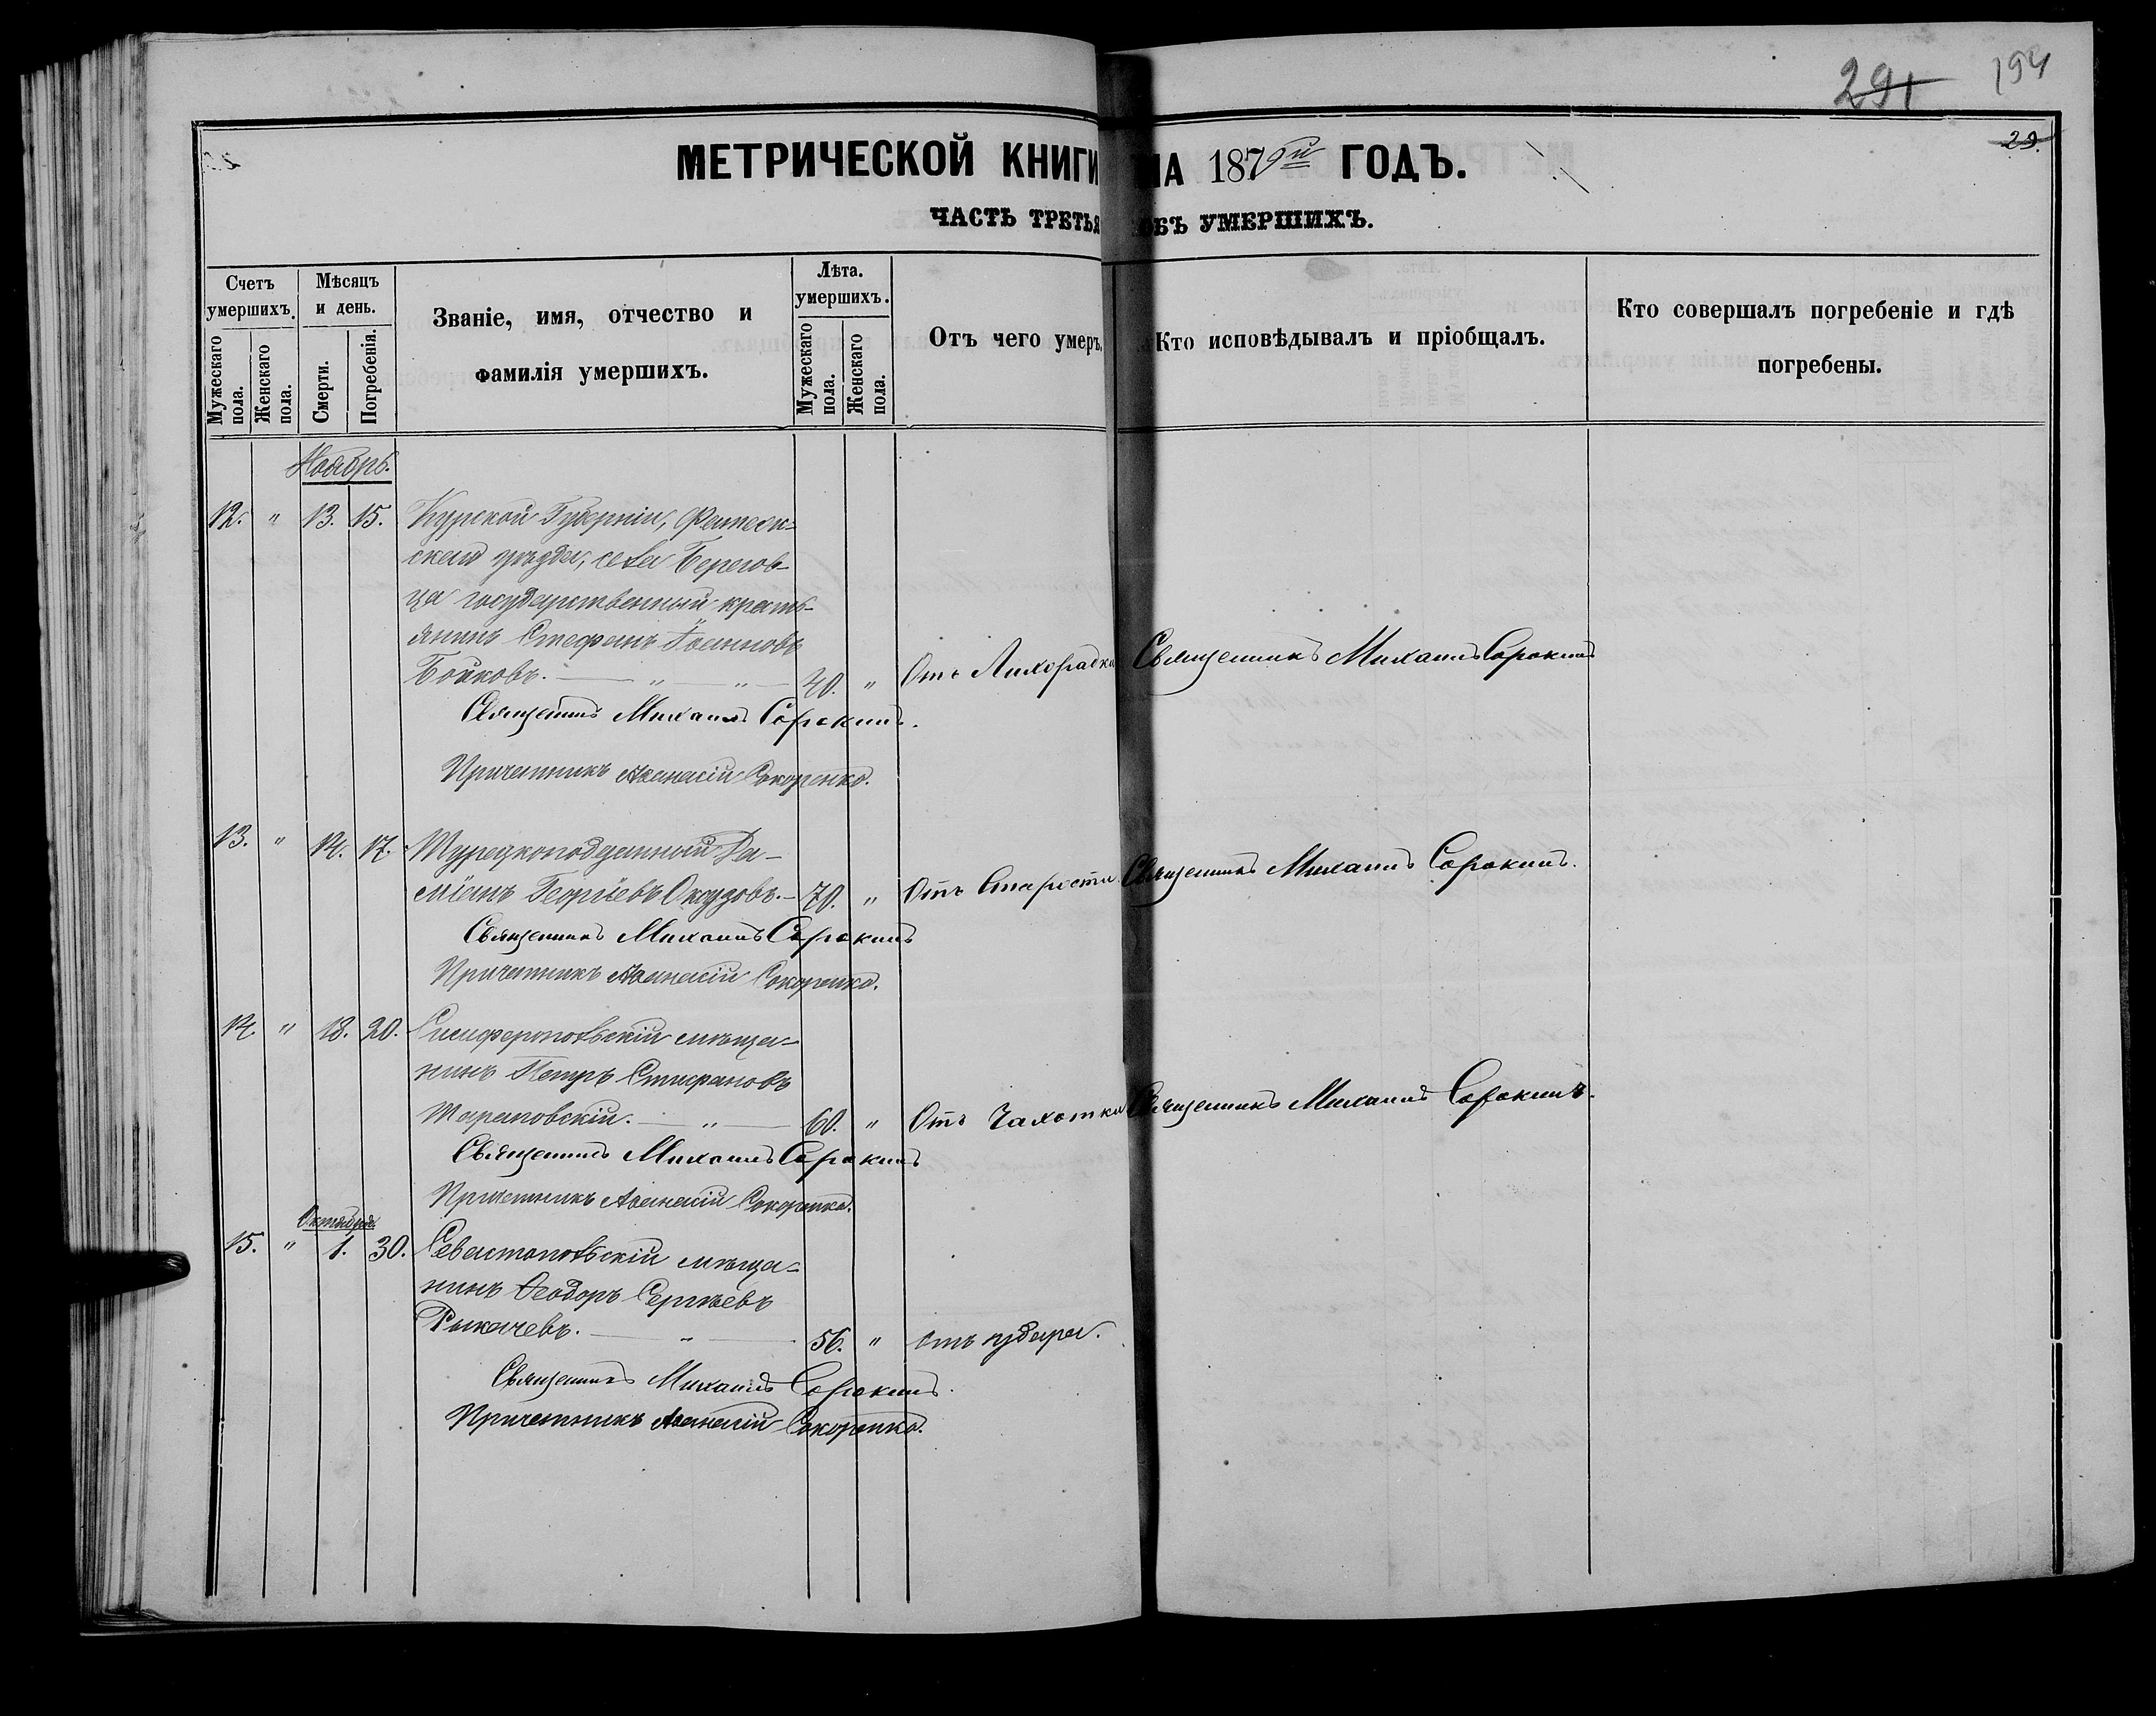 291 194
29.
МЕТРИЧЕСКОЙ КНИГИ НА 1879й ГОДЪ.
ЧАСТЬ ТРЕТЬЯ ОБЪ УМЕРШИХЪ.
Счетъ умершихъ.
Мужескаго пола.
Женскаго пола.
Мѣсяцъ и день.
Смерти.
Погребенія.
Званіе, имя, отчество и
фамилія умершихъ.
Лѣта.
умершихъ.
Мужескаго пола.
Женскаго пола.
Отъ чего умеръ.
Кто исповѣдывалъ и пріобщалъ.
Кто совершалъ погребеніе и гдѣ
погребены.
Ноябрь.
12. " 13. 15. Курской Губерніи, Фатеж-
скаго уѣзда, села Берегов-
ца государственный кресть-
янинъ Стефанъ Іоанновъ
Бойковъ. — " — " — 40. " Отъ Лихорадки Священникъ Михаилъ Сорокинъ
Священникъ Михаилъ Сорокинъ.
Причетникъ Аѳанасій Сокоренко.
13. " 14. 17. Турецкоподданный Да-
міанъ Георгіевъ Окузовъ. — 70. " Отъ Старости Священникъ Михаилъ Сорокинъ.
Священникъ Михаилъ Сорокинъ
Причетникъ Аѳанасій Сокоренко.
14. " 18. 20. Симферопольскій мѣща-
нинъ Петръ Стефановъ
Тарановскій. — " — 60. " Отъ Чахотки Священникъ Михаилъ Сорокинъ.
Священникъ Михаилъ Сорокинъ
Причетникъ Аѳанасій Сокоренко.
Октября
15. " 1. 30. Севастопольскій мѣща-
нинъ Ѳеодоръ Сергѣевъ
Рыкачевъ. — " — 56. " отъ удара.
Священникъ Михаилъ Сорокинъ.
Причетникъ Аѳанасій Сокоренко.